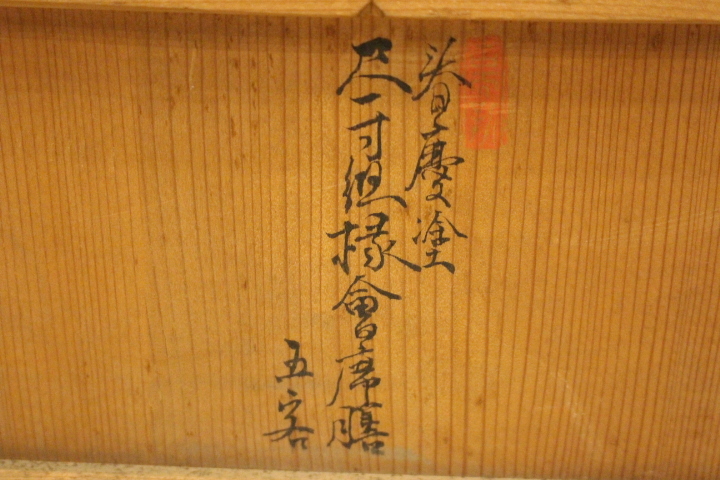 春慶塗
尺一寸組椽會席膳
五客